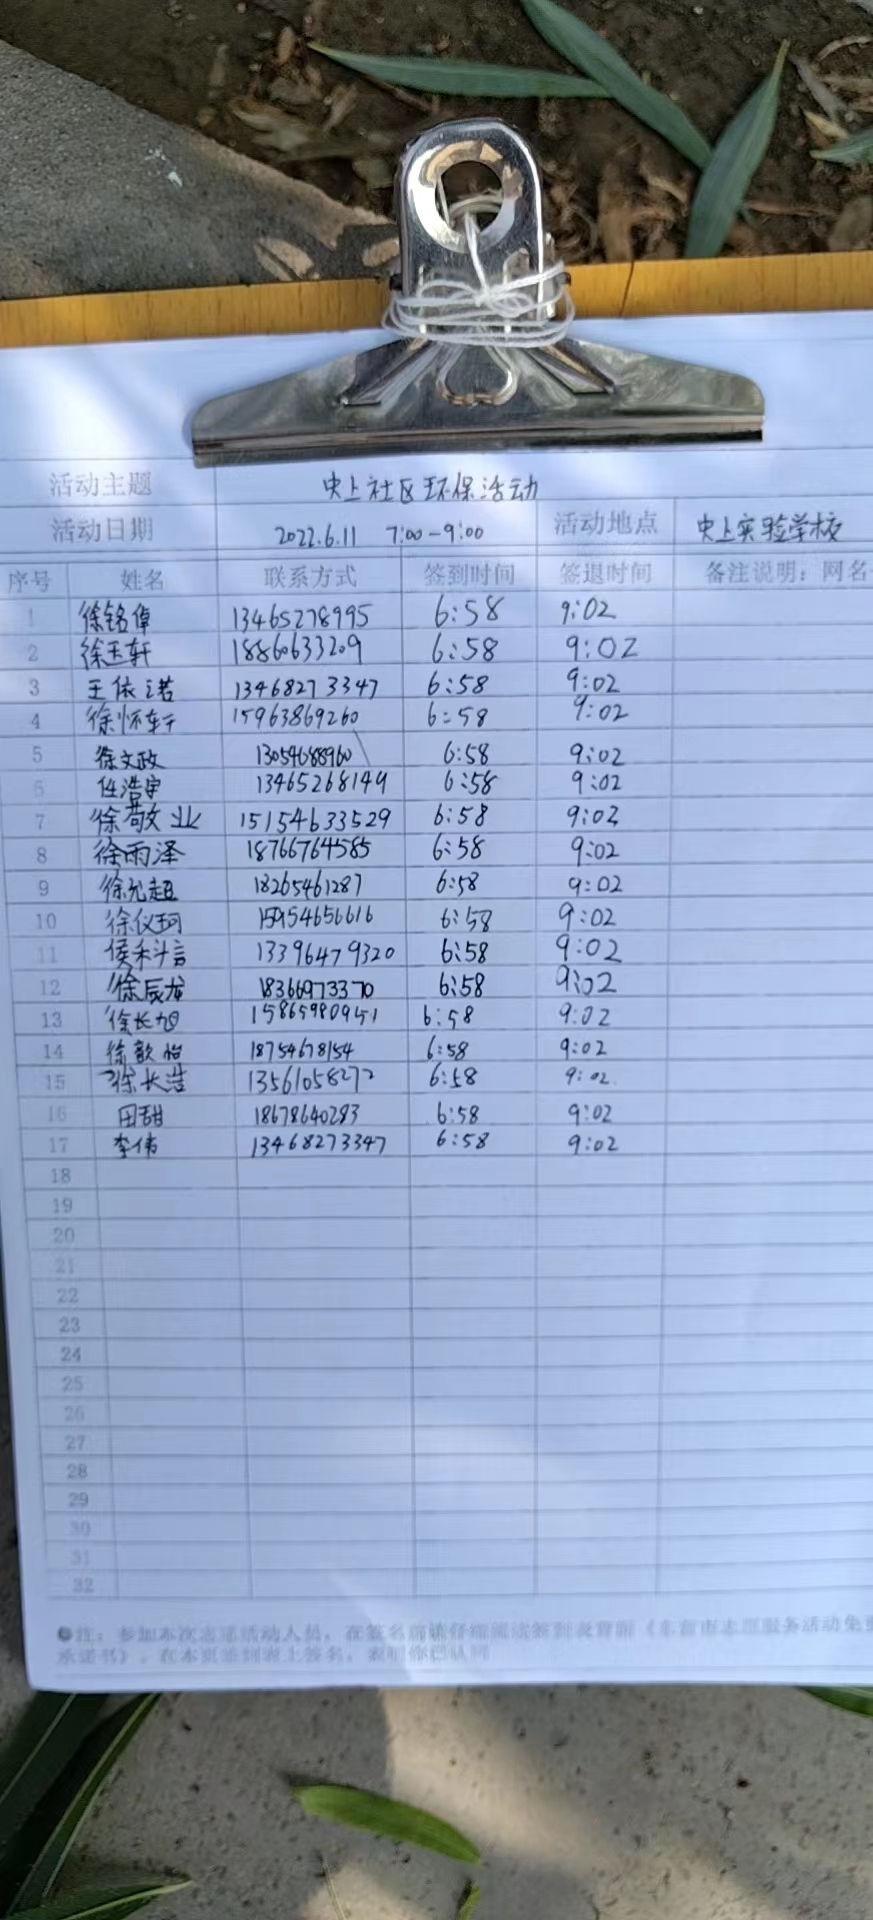 活动主题 史上社区环保活动
活动日期 2022.6.11 7:00-9:00 活动地点 史上实验学校
序号 姓名 联系方式 签到时间 签退时间 备注说明：网名
1 徐铭倬 13465278995 6:58 9:02
2 徐玉轩 18860633209 6:58 9:02
3 王依诺 13468273347 6:58 9:02
4 徐怀轩 15963869260 6:58 9:02
5 徐文政 13054688960 6:58 9:02
6 任浩宇 13465268149 6:58 9:02
7 徐敬业 15154633529 6:58 9:02
8 徐雨泽 18766764585 6:58 9:02
9 徐允超 18265461287 6:58 9:02
10 徐仪珂 15954656616 6:58 9:02
11 侯禾言 13396479320 6:58 9:02
12 徐辰龙 18366973370 6:58 9:02
13 徐长旭 15865980951 6:58 9:02
14 徐歆怡 18754678154 6:58 9:02
15 徐长浩 13561058272 6:58 9:02
16 田甜 18678640293 6:58 9:02
17 李伟 13468273347 6:58 9:02
18
19
20
21
22
23
24
25
26
27
28
29
30
31
32
注：参加本次志愿活动人员，在签名前请仔细阅读签到表背面《东营市志愿服务活动免责
承诺书》，在本页签到表上签名，表明你已认同